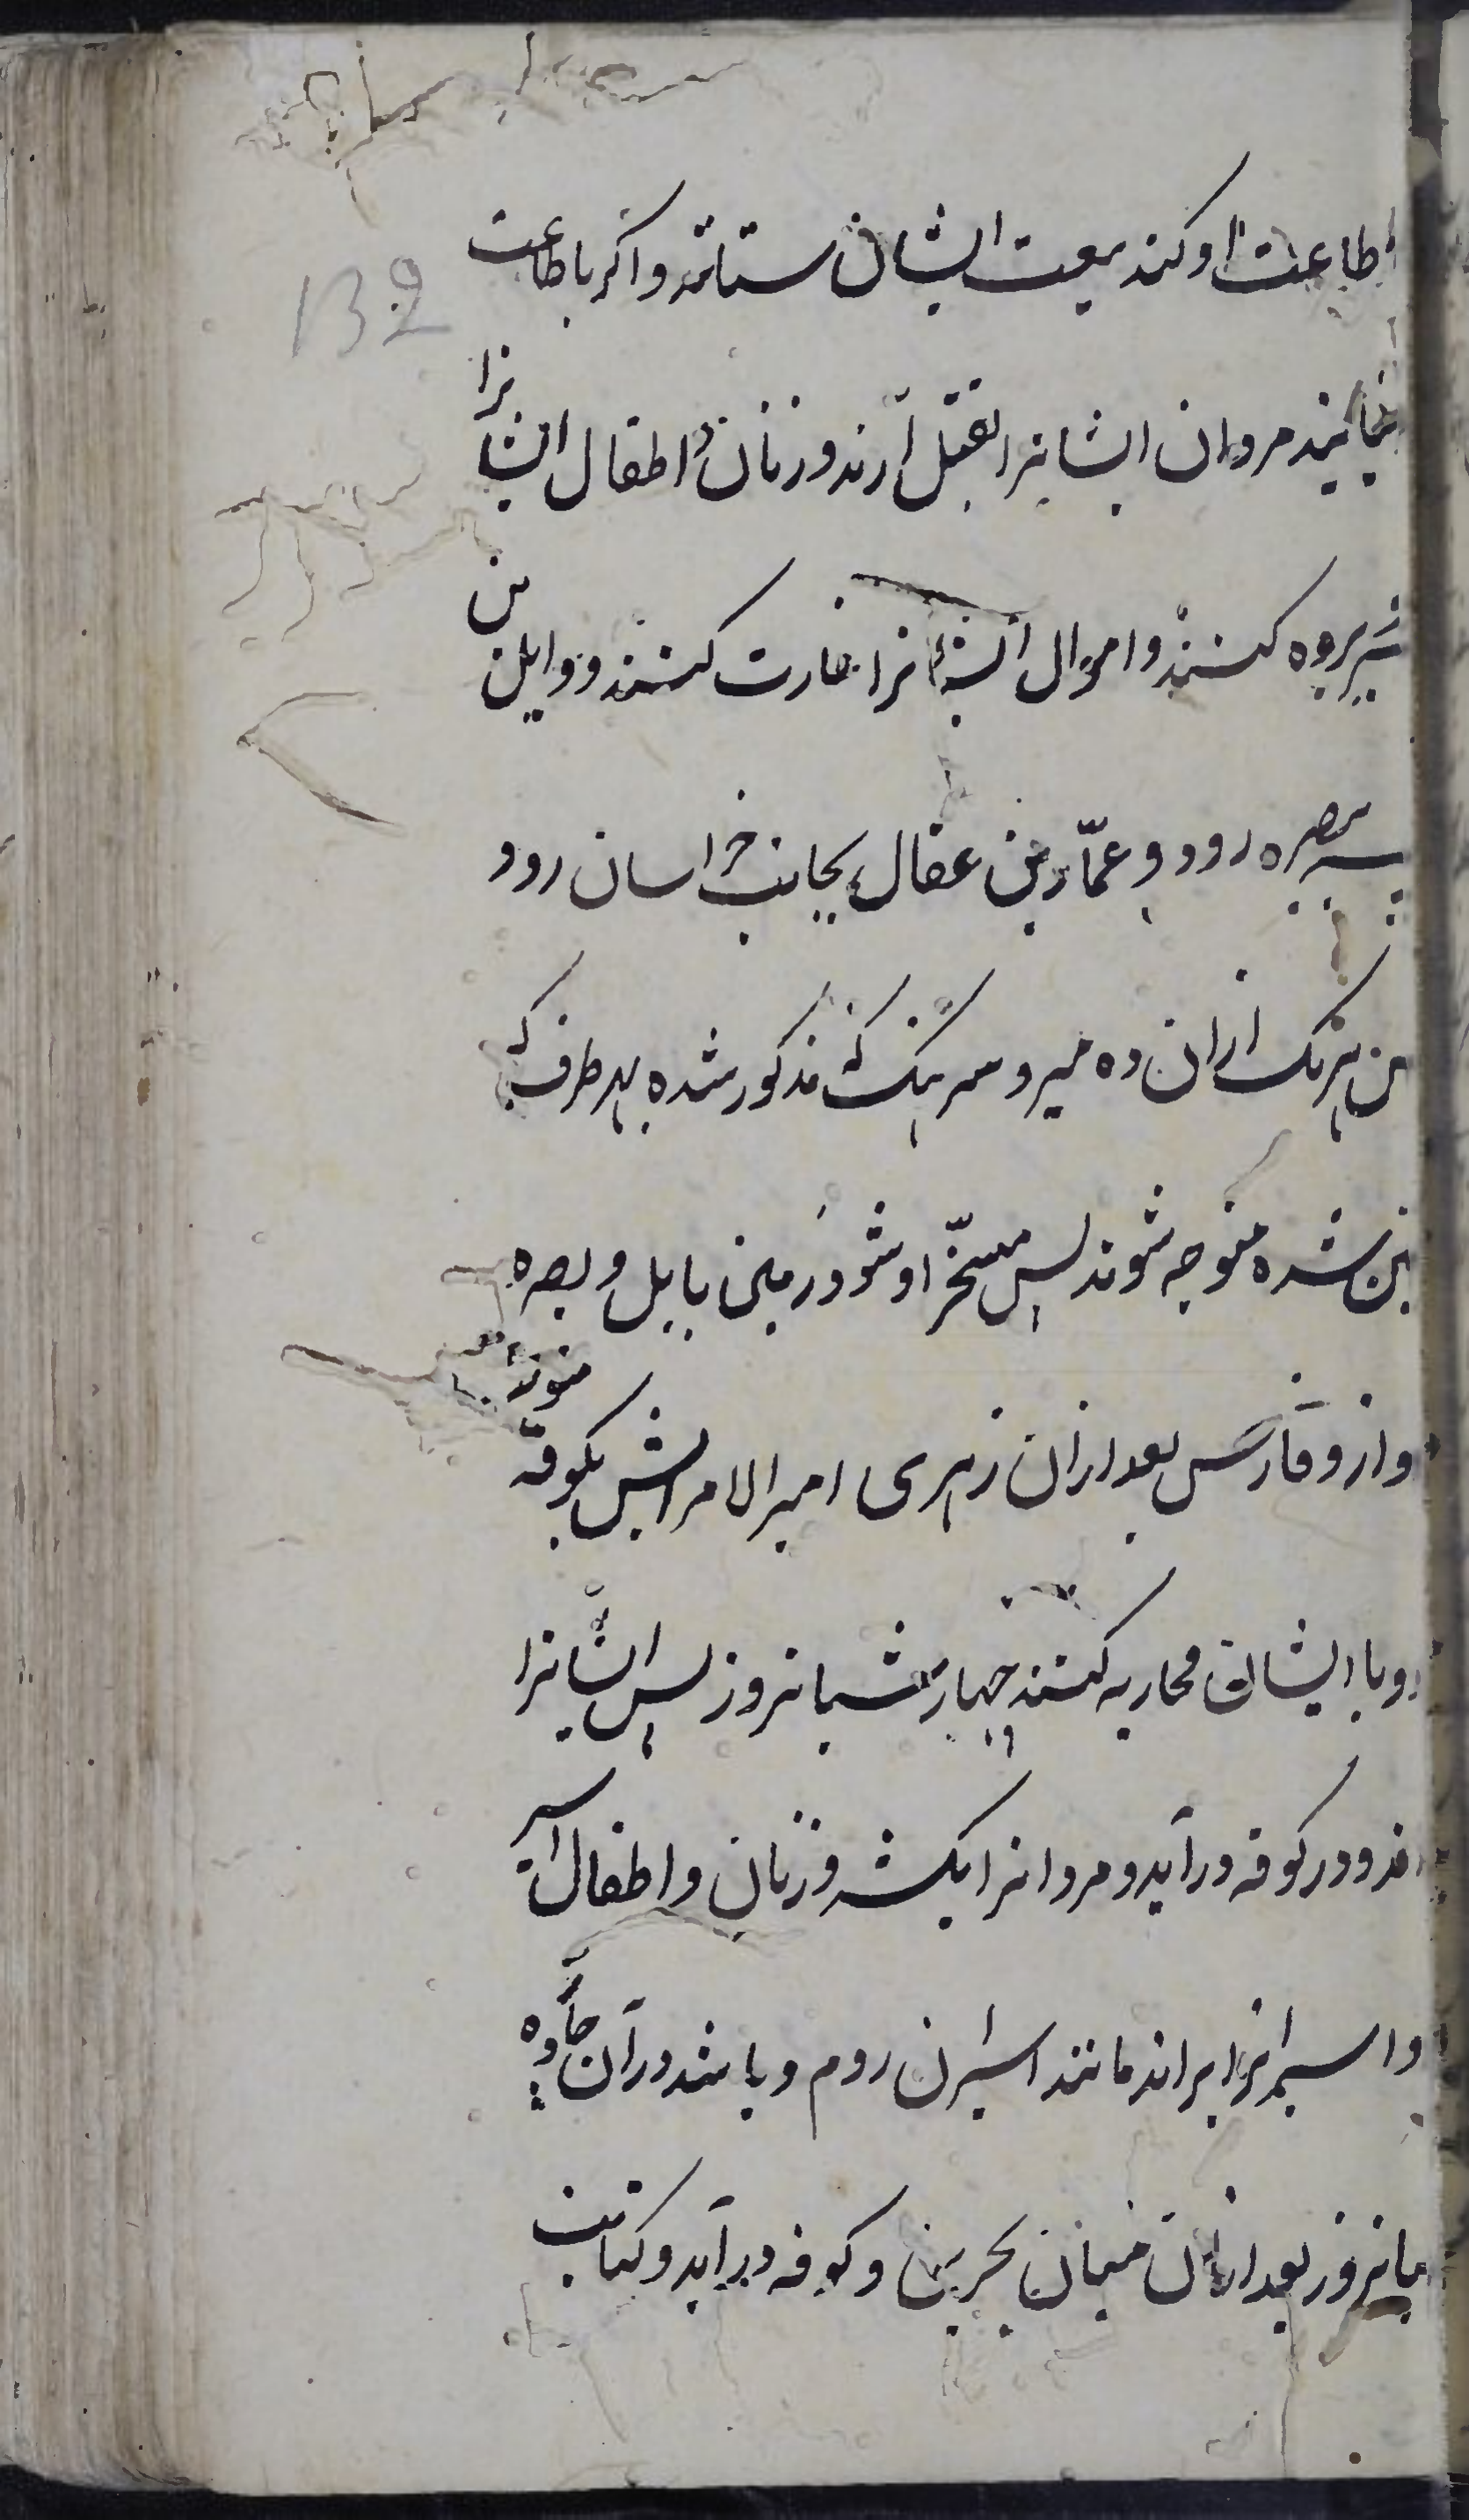 132
اطاعت او کند بیعت ایشان ستانند و اکر باطاعت
نیایند مردان ایشانرا بقتل آرند و زنان و اطفال ایشانرا
بروه کنند و اموال ایشانرا غارت کنند و وایل بن
ببصره رود و عمّار بن عقال بجانب خراسان رود
هریک ازان ده میر و سرهنک که مذکور شده بهر طرف که
شده متوجه شوند پس مسخّر او شود زمین بابل و بصره
واز و فارس بعد ازان زهری امیر الامرایش بکوفه متوجه
و با ایشان محاربه کنند چهار شبانروز پس ایشانرا
و در کوفه درآید و مردانرا بکشد و زنان و اطفال اسیر
و اسیرانرا براند مانند اسیران روم و باشد در آن جا ده
پانزروز بعد ازان میان بحرین و کوفه درآید و کتابت